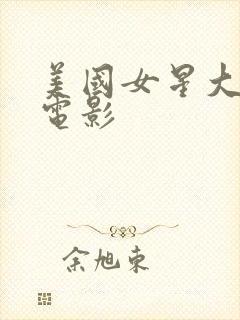 美國女星大
電影
余旭東